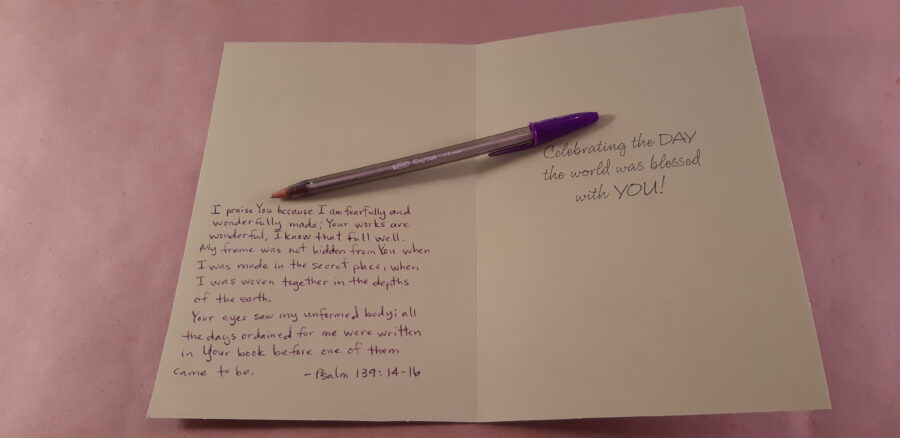 I praise You because I am fearfully and
wonderfully made; Your works are
wonderful, I know that full well.
My frame was not hidden from You when
I was made in the secret place, when
I was woven together in the depths
of the earth.
Your eyes saw my unformed body; all
the days ordained for me were written
in Your book before one of them
came to be.
-Psalm 139:14-16
Celebrating the DAY
the world was blessed
with YOU!
Cristal